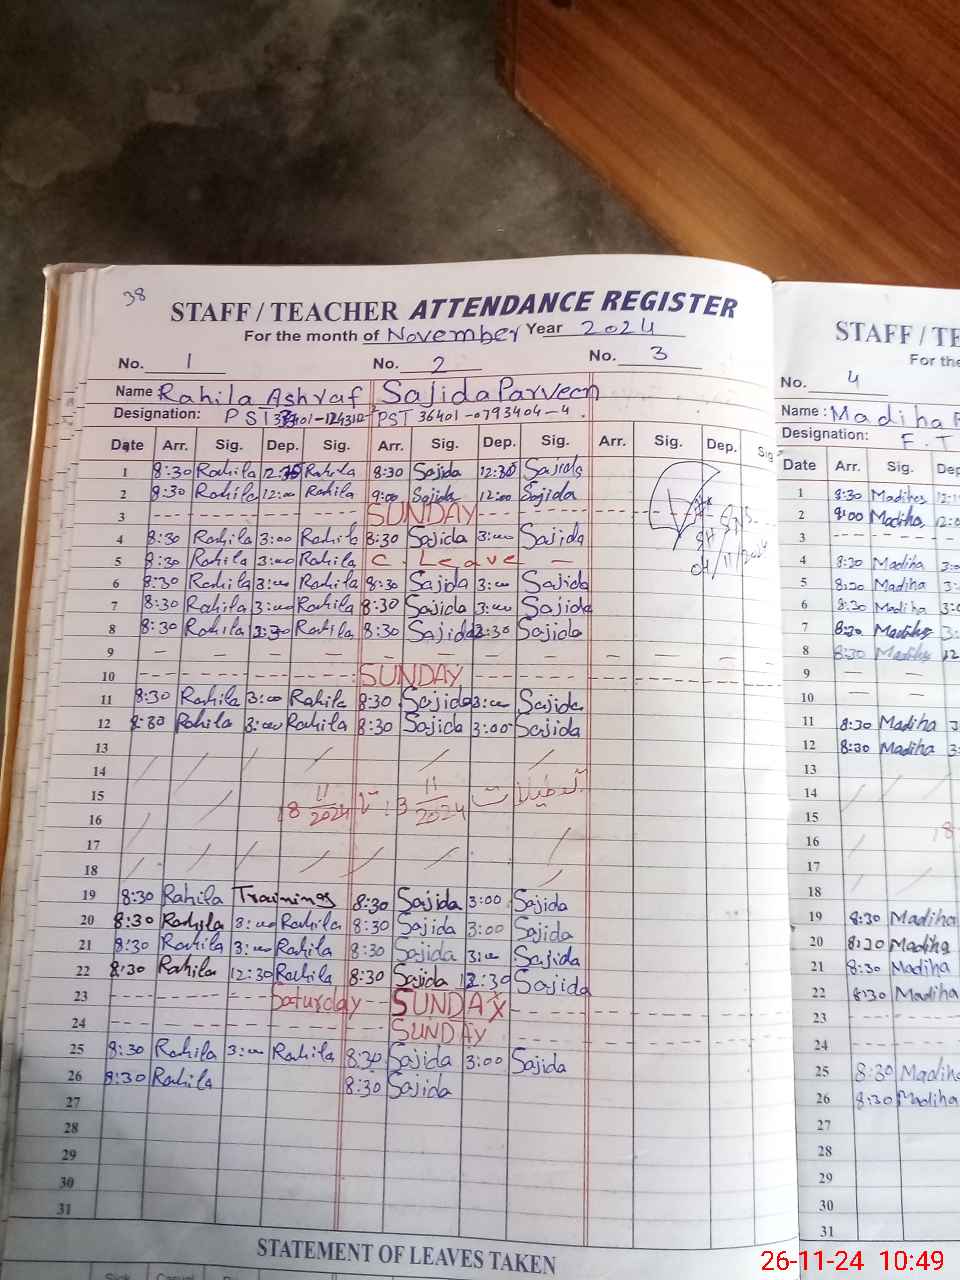 38
STAFF / TEACHER ATTENDANCE REGISTER
For the month of November Year 2024
No. 1 No. 2 No. 3
Name Rahila Ashraf Sajida Parveen
Designation: PST PST 36401-0793404-4
Date Arr. Sig. Dep. Sig. Arr. Sig. Dep. Sig. Arr. Sig. Dep. Sig
1 8:30 Rahila 12:30 Rahila 8:30 Sajida 12:30 Sajida
2 8:30 Rahila 12:00 Rahila 9:00 Sajida 12:00 Sajida
3 SUNDAY
4 8:30 Rahila 3:00 Rahila 8:30 Sajida 3:00 Sajida
5 8:30 Rahila 3:00 Rahila C. Leave
6 8:30 Rahila 3:00 Rahila 8:30 Sajida 3:00 Sajida
7 8:30 Rahila 3:00 Rahila 8:30 Sajida 3:00 Sajida
8 8:30 Rahila Rahila 8:30 Sajida 12:30 Sajida
9
10 SUNDAY
11 8:30 Rahila 3:00 Rahila 8:30 Sajida 3:00 Sajida
12 8:30 Rahila 3:00 Rahila 8:30 Sajida 3:00 Sajida
13
14
15
16
17
18
19 8:30 Rahila Training 8:30 Sajida 3:00 Sajida
20 8:30 Rahila 3:00 Rahila 8:30 Sajida 3:00 Sajida
21 8:30 Rahila 3:00 Rahila 8:30 Sajida 3:00 Sajida
22 8:30 Rahila 12:30 Rahila 8:30 Sajida 12:30 Sajida
23 Saturday SUNDAY
24 SUNDAY
25 8:30 Rahila 3:00 Rahila 8:30 Sajida 3:00 Sajida
26 8:30 Rahila 8:30 Sajida
27
28
29
30
31
STATEMENT OF LEAVES TAKEN
04/11/2024
STAFF / TE
For the
No. 4
Name : Madiha
Designation:
Date Arr. Sig. Dep
1 8:30 Madiha
2 9:00 Madiha
3
4 8:30 Madiha
5 8:30 Madiha
6 8:30 Madiha
7 8:30 Madiha
8 8:30 Madiha 12
9
10
11 8:30 Madiha
12 8:30 Madiha
13
14
15
16
17
18
19 8:30 Madiha
20 8:30 Madiha
21 8:30 Madiha
22 8:30 Madiha
23
24
25 8:30 Madiha
26 8:30 Madiha
27
28
29
30
31
26-11-24 10:49